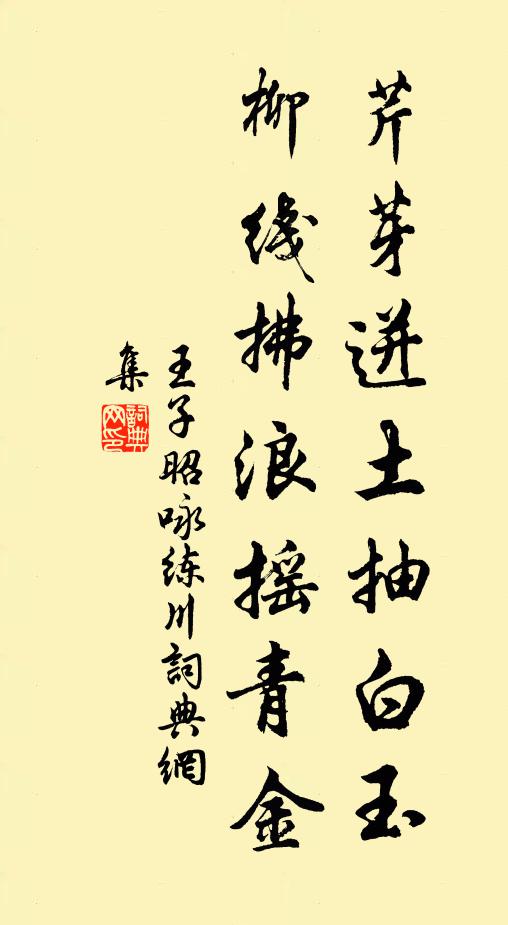 芹芽迸土抽白玉
柳线拂浪摇青金
王子昭咏练川詞典網
集
詞典网印